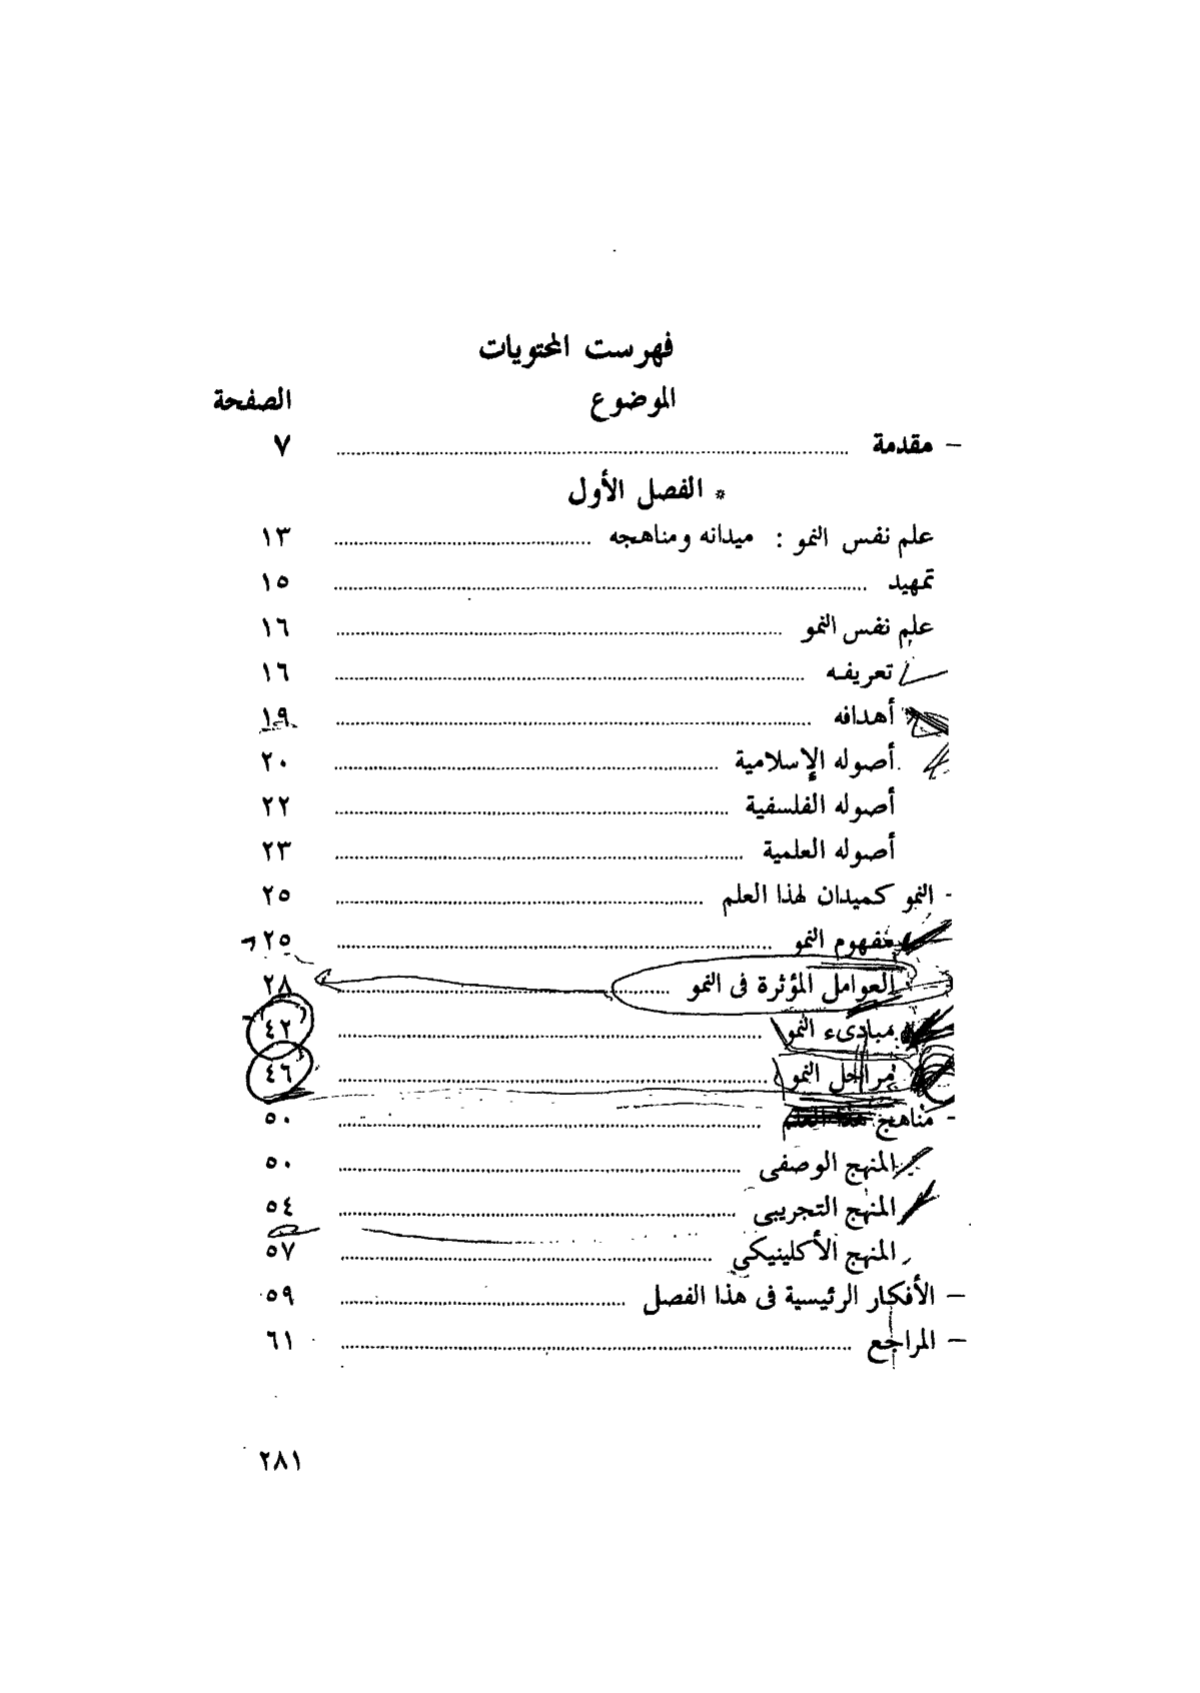 فهرست المحتويات
الموضوع الصفحة
– مقدمة ........ ٧
* الفصل الأول
علم نفس النمو : ميدانه ومناهجه ........ ١٣
تمهيد ........ ١٥
علم نفس النمو ........ ١٦
تعريفه ........ ١٦
أهدافه ........ ١٩
أصوله الإسلامية ........ ٢٠
أصوله الفلسفية ........ ٢٢
أصوله العلمية ........ ٢٣
- النمو كميدان لهذا العلم ........ ٢٥
مفهوم النمو ........ ٢٥
العوامل المؤثرة فى النمو ........ ٢٨
مبادىء النمو ........ ٤٢
مراحل النمو ........ ٤٦
- مناهج هذا العلم ........ ٥٠
المنهج الوصفى ........ ٥٠
المنهج التجريبى ........ ٥٤
المنهج الأكلينيكي ........ ٥٧
– الأفكار الرئيسية فى هذا الفصل ........ ٥٩
– المراجع ........ ٦١
٢٨١